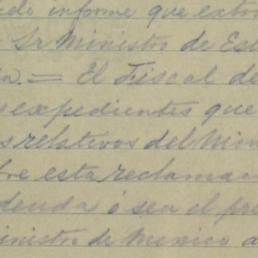 do informe que
Sr Ministro de Es
a.= El Fiscal de
expedientes que
s relativos del Min
bre esta reclamac
deuda ó sea el pre
inistro de Mexico a